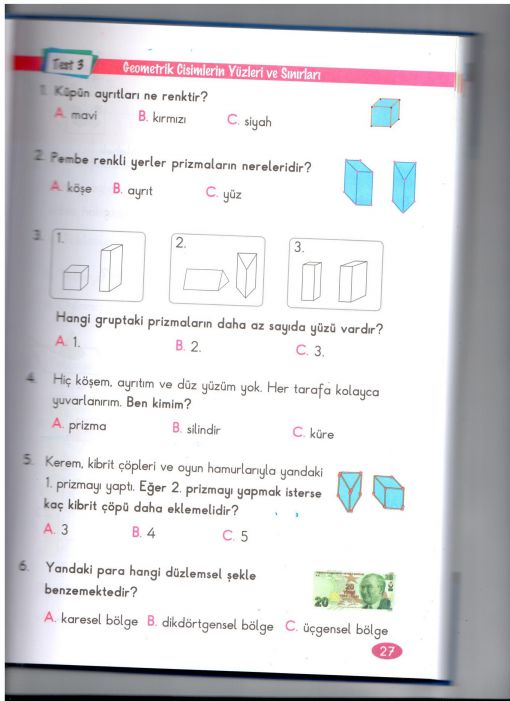 Test 3
Geometrik Cisimlerin Yüzleri ve Sınırları
1. Küpün ayrıtları ne renktir?
A. mavi B. kırmızı C. siyah
2. Pembe renkli yerler prizmaların nereleridir?
A. köşe B. ayrıt C. yüz
3. 1. 2. 3.
Hangi gruptaki prizmaların daha az sayıda yüzü vardır?
A. 1. B. 2. C. 3.
4. Hiç köşem, ayrıtım ve düz yüzüm yok. Her tarafa kolayca
yuvarlanırım. Ben kimim?
A. prizma B. silindir C. küre
5. Kerem, kibrit çöpleri ve oyun hamurlarıyla yandaki
1. prizmayı yaptı. Eğer 2. prizmayı yapmak isterse
kaç kibrit çöpü daha eklemelidir?
A. 3 B. 4 C. 5
6. Yandaki para hangi düzlemsel şekle
benzemektedir?
20
20
A. karesel bölge B. dikdörtgensel bölge C. üçgensel bölge
27